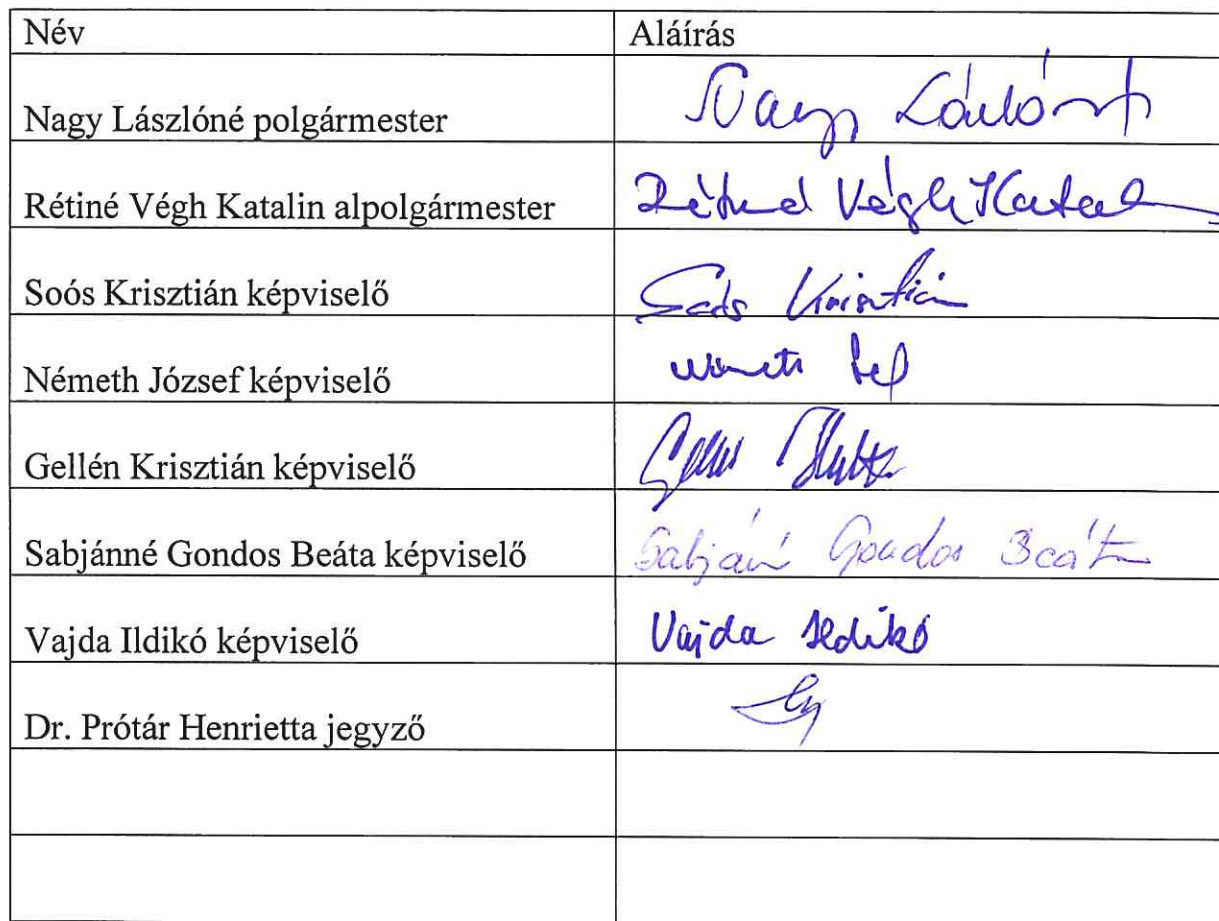 Név Aláírás
Nagy Lászlóné polgármester Nagy Lászlóné
Rétiné Végh Katalin alpolgármester Rétiné Végh Katal
Soós Krisztián képviselő Soós Krisztián
Németh József képviselő Németh
Gellén Krisztián képviselő
Sabjánné Gondos Beáta képviselő Sabjánné Gondos Beáta
Vajda Ildikó képviselő Vajda Ildikó
Dr. Prótár Henrietta jegyző